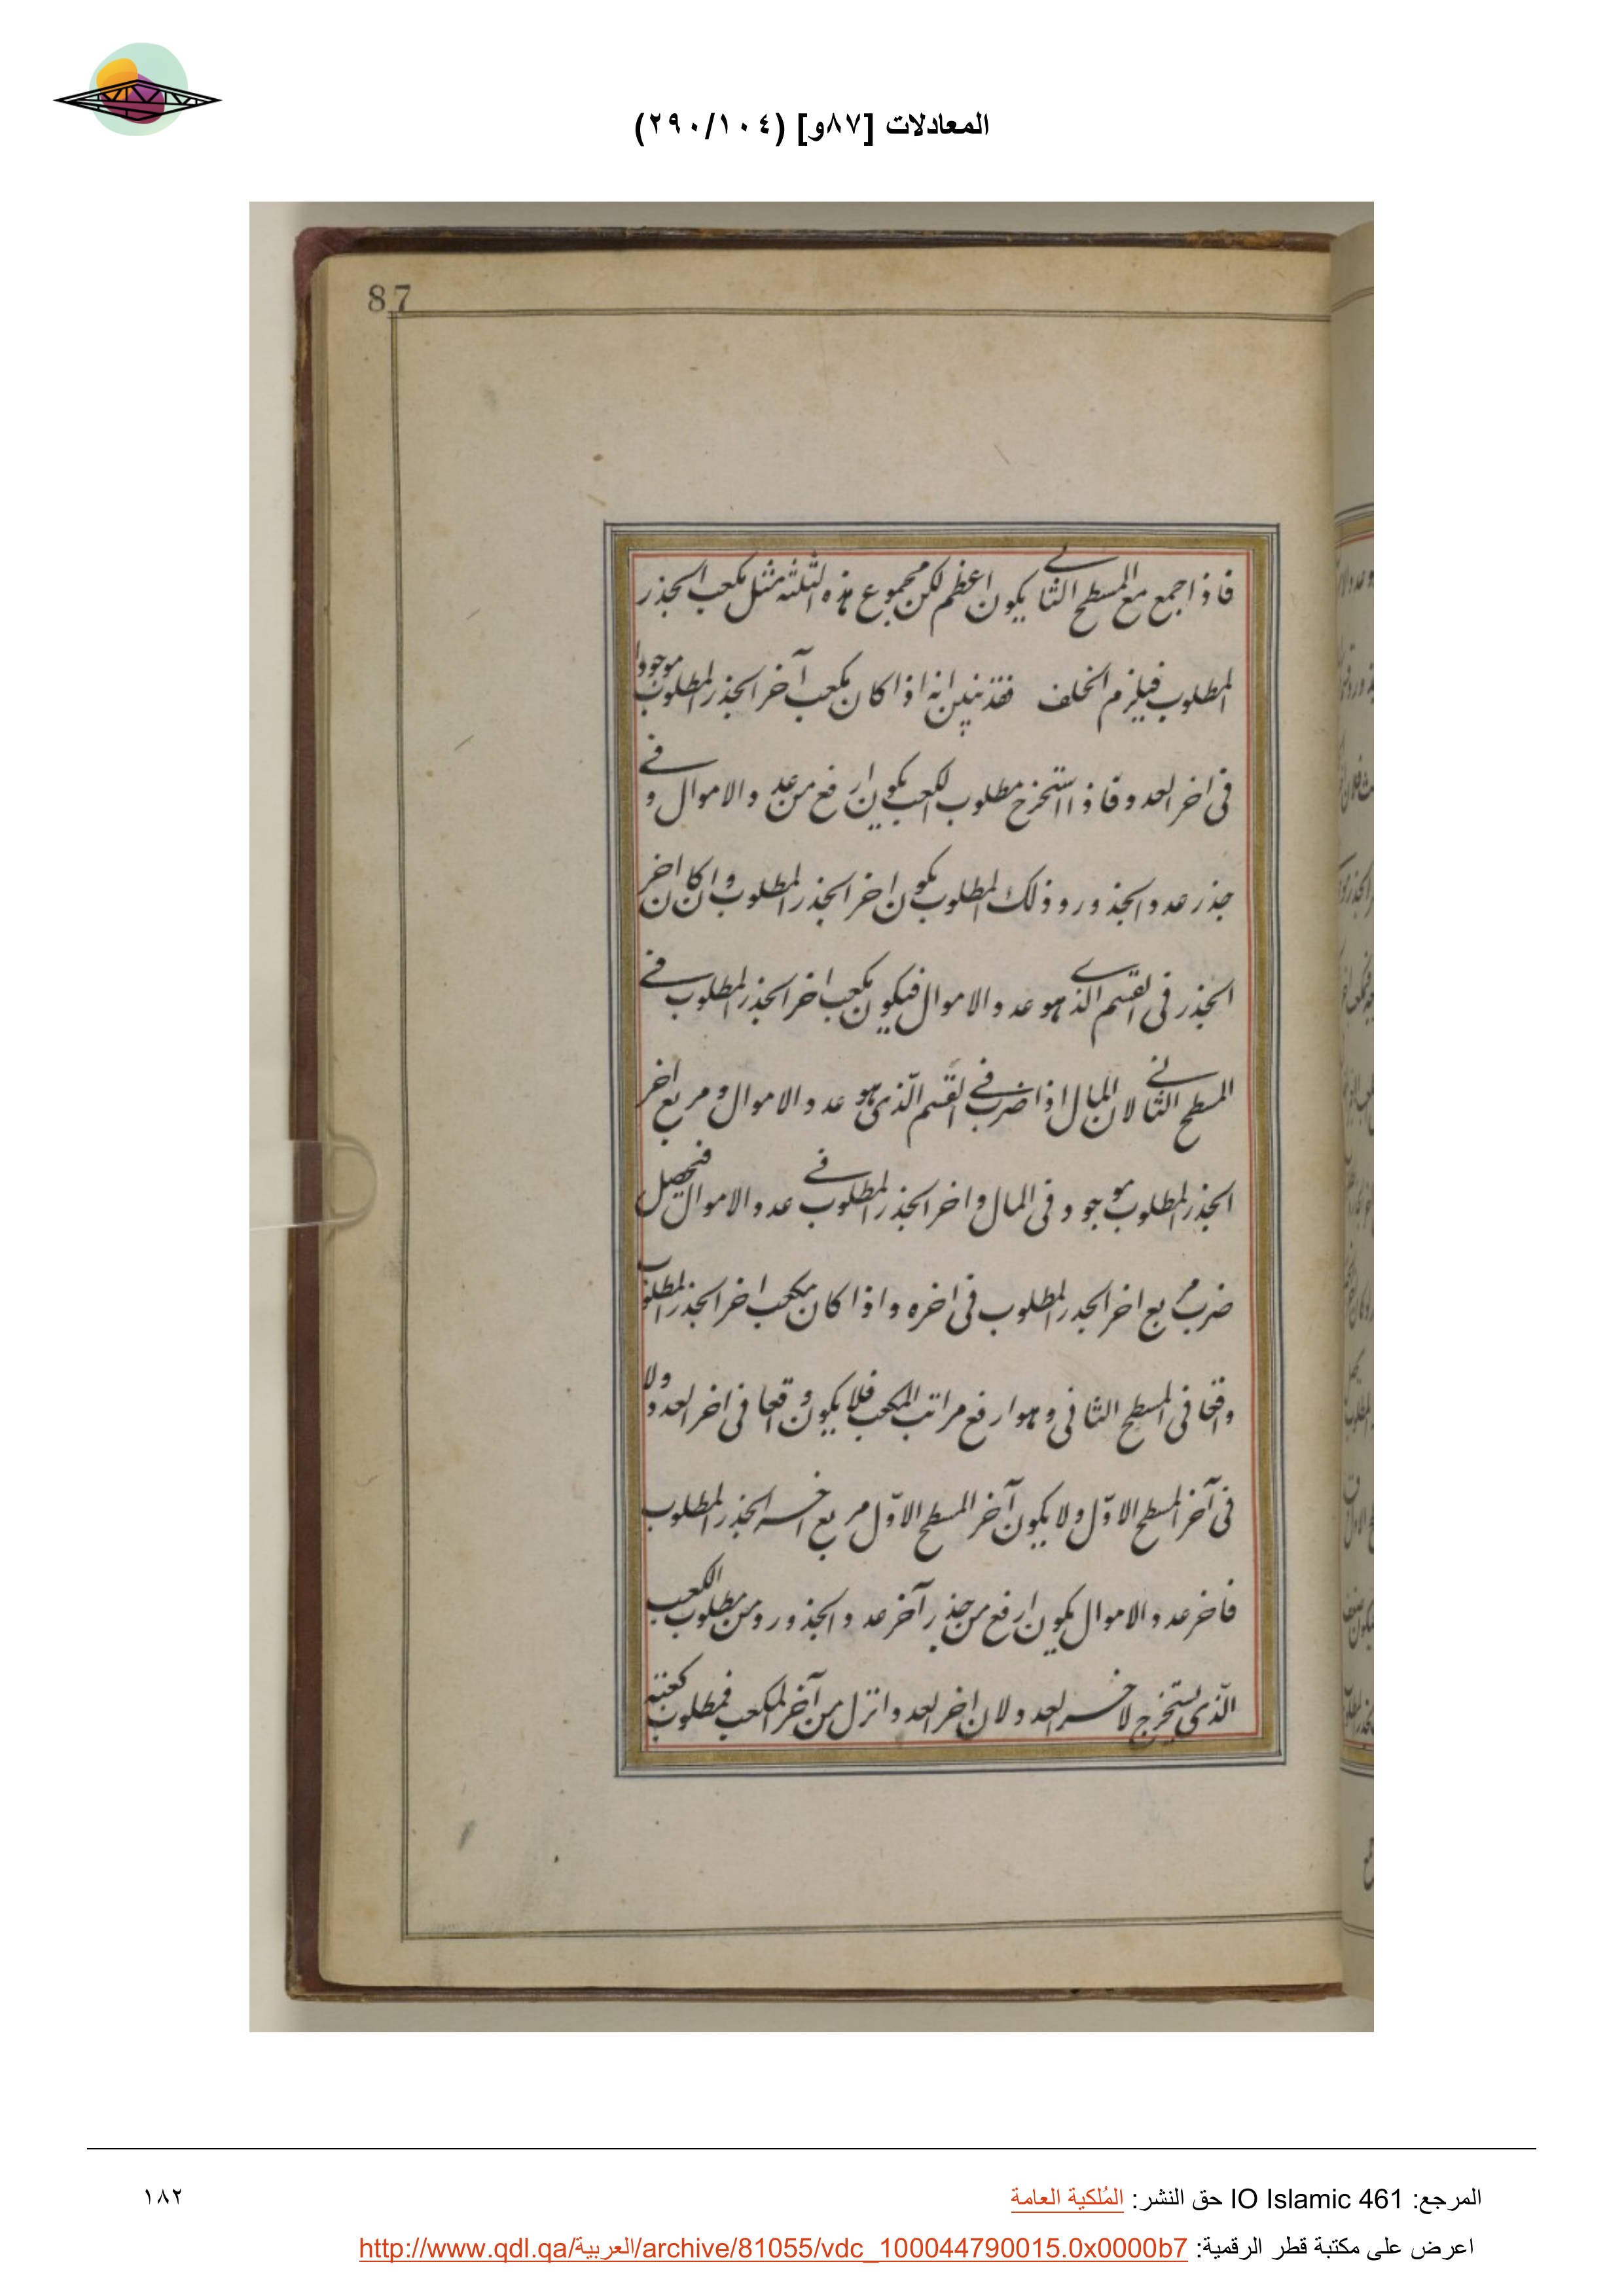 المعادلات [٨٧و] (٢٩٠/١٠٤)
87
فاذا جمع مع المسطح الثاني يكون اعظم لكن مجموع هذه الثلثة مثل مكعب الجذر
المطلوب فيلزم الخلف فقد تبين انه اذا كان مكعب آخر الجذر المطلوب موجودا
فى اخر العدد فاذا استخرج مطلوب الكعب يكون ارفع من عدد الاموال و
جذر عدد الجذور وذلك المطلوب يكون اخر الجذر المطلوب وان كان اخر
الجذر فى القسم الذي هو عدد الاموال فيكون مكعب اخر الجذر المطلوب في
المسطح الثاني لان المال اذا ضرب في القسم الّذى هو عدد الاموال و مربع اخر
الجذر المطلوب موجود فى المال و اخر الجذر المطلوب في عدد الاموال فيحصل
ضرب مربع اخر الجدر المطلوب فى اخره واذا كان مكعب اخر الجذر المطلوب
واقعا فى المسطح الثانى وهو ارفع مراتب المكعب فلا يكون واقعا فى اخر العدد ولا
فى آخر المسطح الاوّل ولا يكون آخر المسطح الاوّل مربع اخر الجذر المطلوب
فاخر عدد الاموال يكون ارفع من جذر آخر عدد الجذور ومن مطلوب الكعب
الّذى يستخرج لاخر العدد لان اخر العدد انزل من آخر المكعب فمطلوب كعبه
المرجع: IO Islamic 461 حق النشر: المُلكية العامة
١٨٢
اعرض على مكتبة قطر الرقمية: http://www.qdl.qa/العربية/archive/81055/vdc_100044790015.0x0000b7